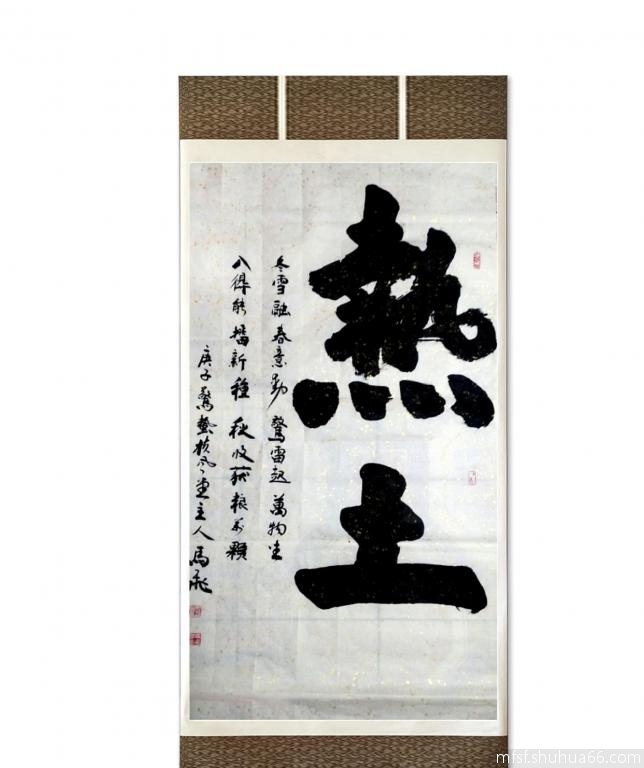 熱土
冬雪融春意動驚雷起萬物生
入得能播新種秋收获粮萬顆
庚子驚蟄 主人馬飛
mfsf.shuhua66.com